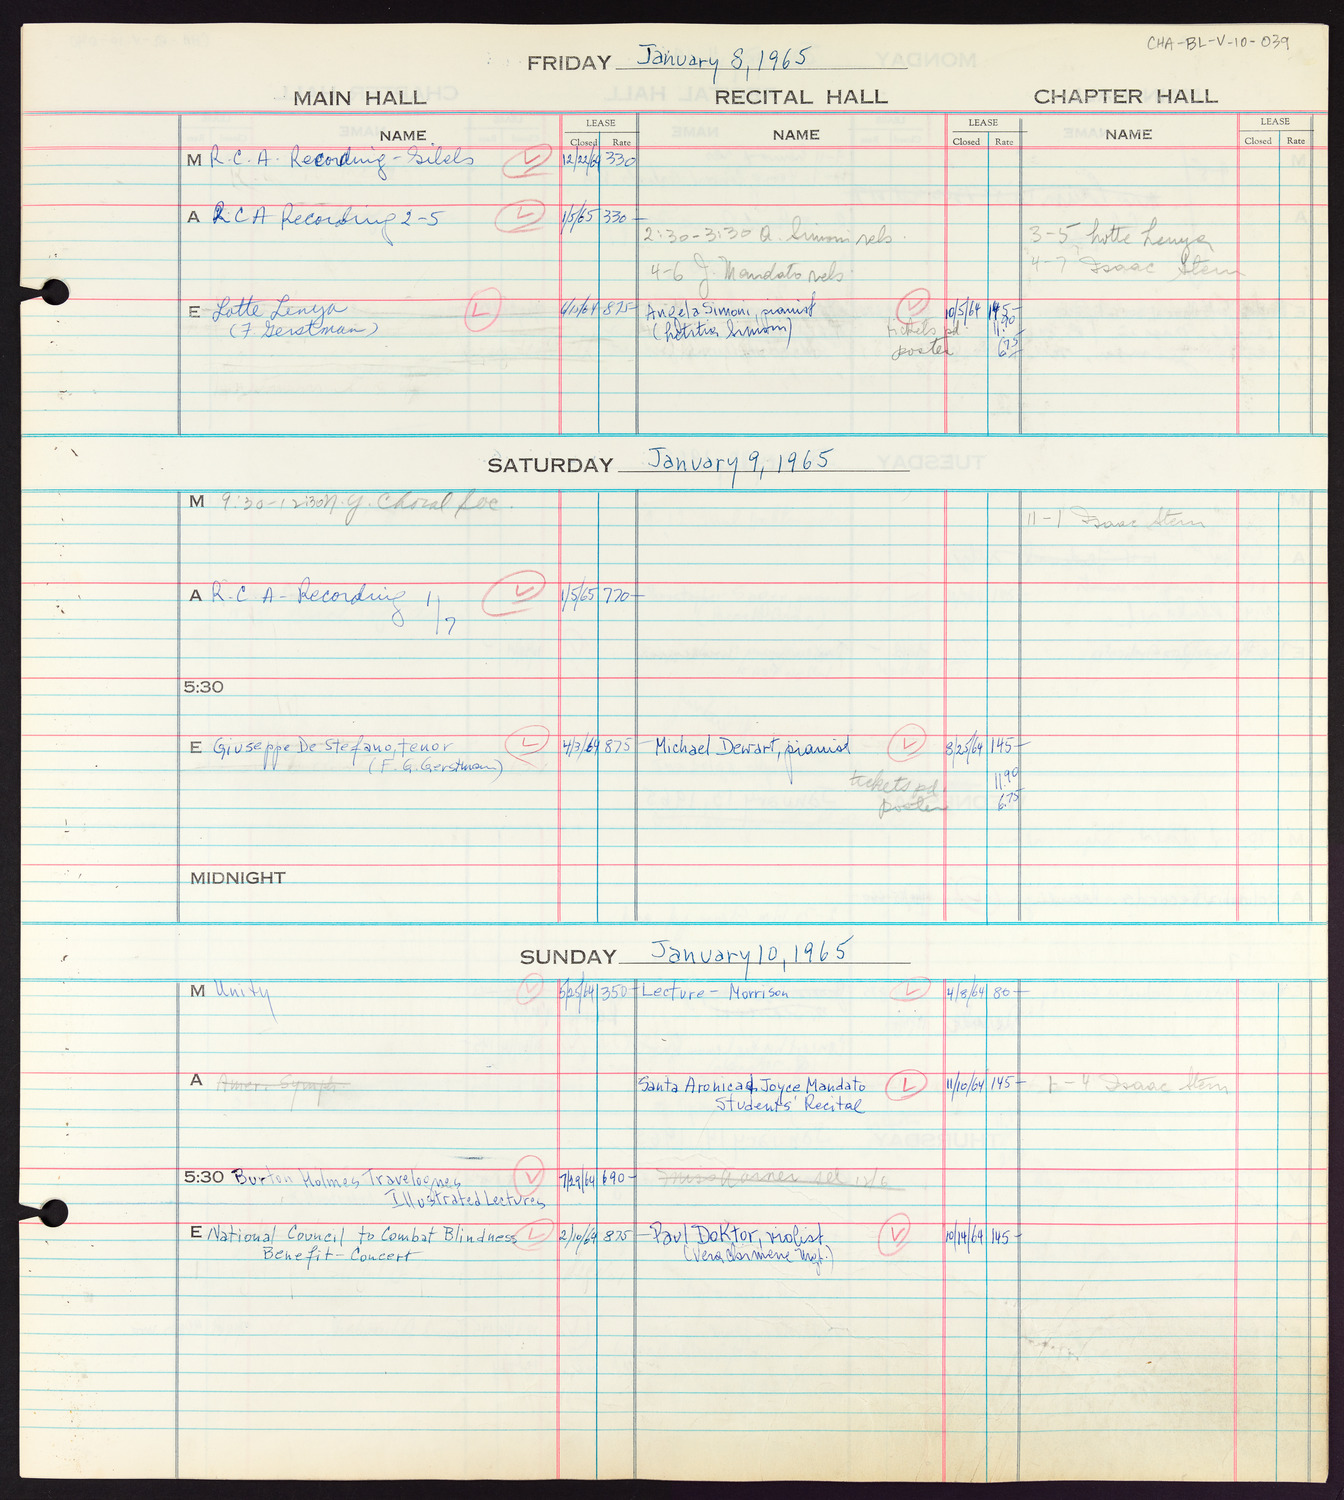 CHA-BL-V-10-039
FRIDAY January 8, 1965
MAIN HALL RECITAL HALL CHAPTER HALL
NAME LEASE NAME LEASE NAME LEASE
Closed Rate Closed Rate Closed Rate
M R.C.A. Recording - Gilels 12/22/64 330
A RCA Recording 2-5 1/5/65 330 -
2:30-3:30 A. Simoni rehs. 3-5 Lotte Lenya
4-6 J. Mandato rehs. 4-7 Isaac Stern
E Lotte Lenya 875- Angela Simoni, pianist 10/5/64 145-
(F Gerstman) (Letitia Simoni) tickets pd 11.90
poster 6.75
SATURDAY January 9, 1965
M 9:30-12:30 N.Y. Choral Soc. 11-1 Isaac Stern
A R.C.A- Recording 1/7 1/5/65 770-
5:30
E Giuseppe De Stefano, tenor 4/3/64 875- Michael Dewart, pianist 8/25/64 145-
(F. G. Gerstman) tickets pd. 11.90
poster 6.75
MIDNIGHT
SUNDAY January 10, 1965
M Unity 5/25/64 350- Lecture - Morrison 4/8/64 80-
A Amer. Symph. Santa Aronica & Joyce Mandato 11/10/64 145- 1-4 Isaac Stern
Students' Recital
5:30 Burton Holmes Travelogues 7/29/64 690- see 12/6
Illustrated Lectures
E National Council to Combat Blindness 2/10/64 875- Paul Doktor, violist 10/14/64 145-
Benefit - Concert (Vera Mgt.)